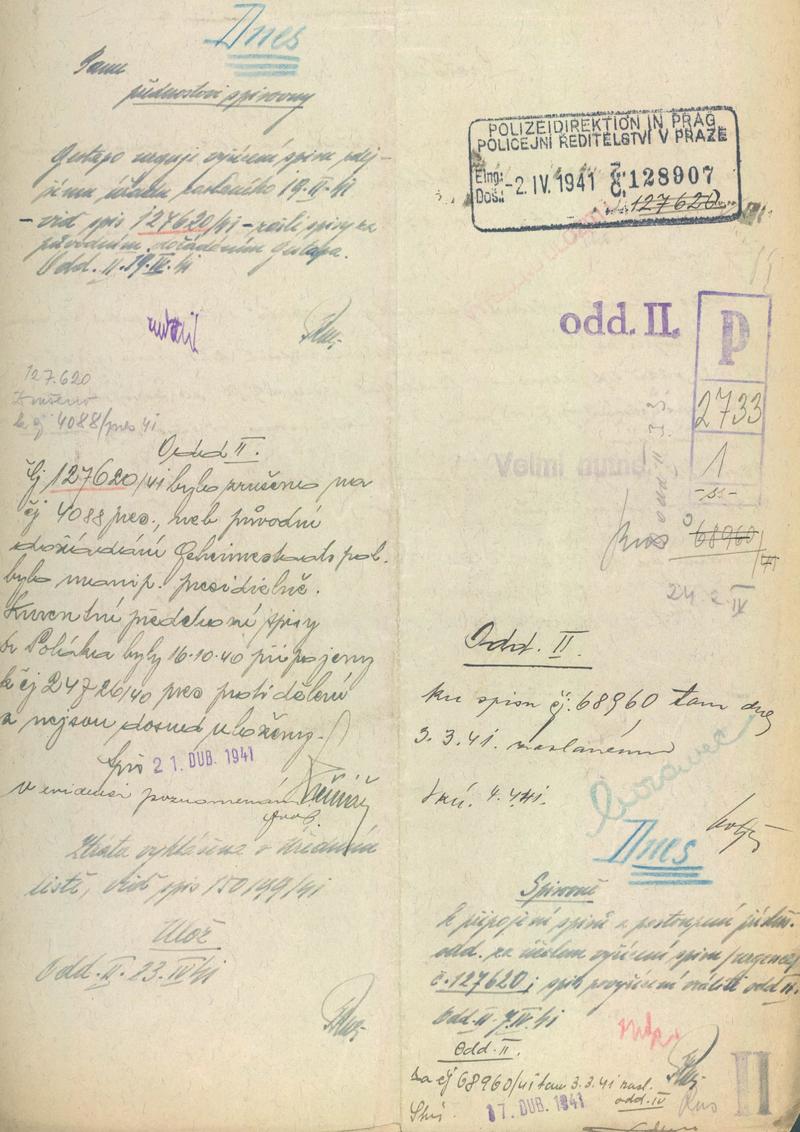 Dnes
Panu
přednostovi spisovny
Gestapo urguje vyřízení spisu
úřadu zaslaného 19.II.41
– viz spis 127620/41 – zašli spisy za
původním dožádáním Gestapa.
Odd. II. 19.IV.41
127.620
Zrušeno
k čj 4088/pres 41
Odd II.
Čj 127620/41 bylo zrušeno na
čj 4088 pres., neb původní
dožádání Geheimestaatspol.
bylo manip. presidielně.
Kurentní předchozí spisy
Dr Poláka byly 16.10.40 připojeny
k čj 24726/40 pres proti dělení
a nejsou dosud uloženy.
Spis 21. DUB. 1941
v evidenci poznamenán
Ztráta vyhlášena v úředním
listě, viz spis 150199/41
Ulož
Odd. II. 23.IV.41
POLIZEIDIREKTION IN PRAG
POLICEJNÍ ŘEDITELSTVÍ V PRAZE
Eing.:
Doš.: -2. IV. 1941 č. 128907
127620
odd. II.
P
2733
1
Velmi nutné
odd II 3.3.
68960/41
24 2 IV
Odd. II.
ku spisu čj. 68960 tam dne
3.3.41. zaslanému
4.4.41.
Dnes
Spisovně
k připojení spisů a postoupení
odd. za účelem vyřízení spisu /urgence/
č. 127620; spis po vyřízení vrátiti odd II.
Odd. II. 7.IV.41
Odd. II.
čj 68960/41 tam 3.3.41 zasl.
odd. IV
17. DUB. 1941
II